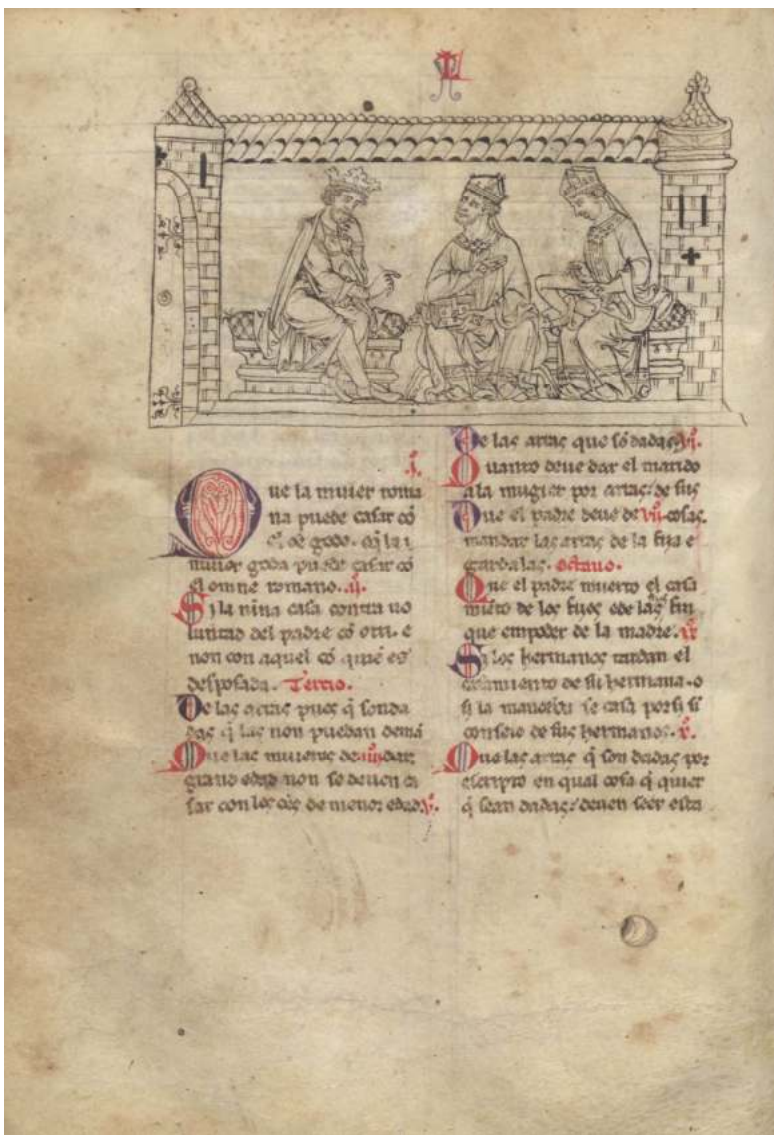 L
.i.
Que la muier roma
na puede casar cõ
godo. q̃ la
muier goda puede casar cõ
el omne romano. .ii.
Si la nina casa contra uo
luntad del padre cõ otri. e
non con aquel cõ quiẽ es
desposada. Tercio.
De las arras pues q̃ son da
das q̃ las non puedan demã
Que las mugieres de .iiii. dar
grand edad non se deuen ca
sar con los de menor edad. .v.
De las arras que sõ dadas. .vi.
Quanto deue dar el marido
a la mugier por arras. de sus
Que el padre deue de .vii. cosas.
mandar las arras de la fija e
guardalas. octauo.
Que el padre muerto el casa
miẽto de los e de las
que en poder de la madre. .ix.
Si los hermanos tardan el
casamiento de su hermana. o
si la manceba se casa por si sĩ
conseio de sus hermanos. .x.
Que las arras q̃ son dadas por
escripto en qual cosa q̃ quier
q̃ sean dadas. deuen seer esta